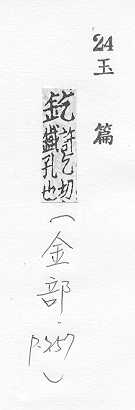 24玉篇
釳
許乞切
鐵孔也
(金部.P.257)